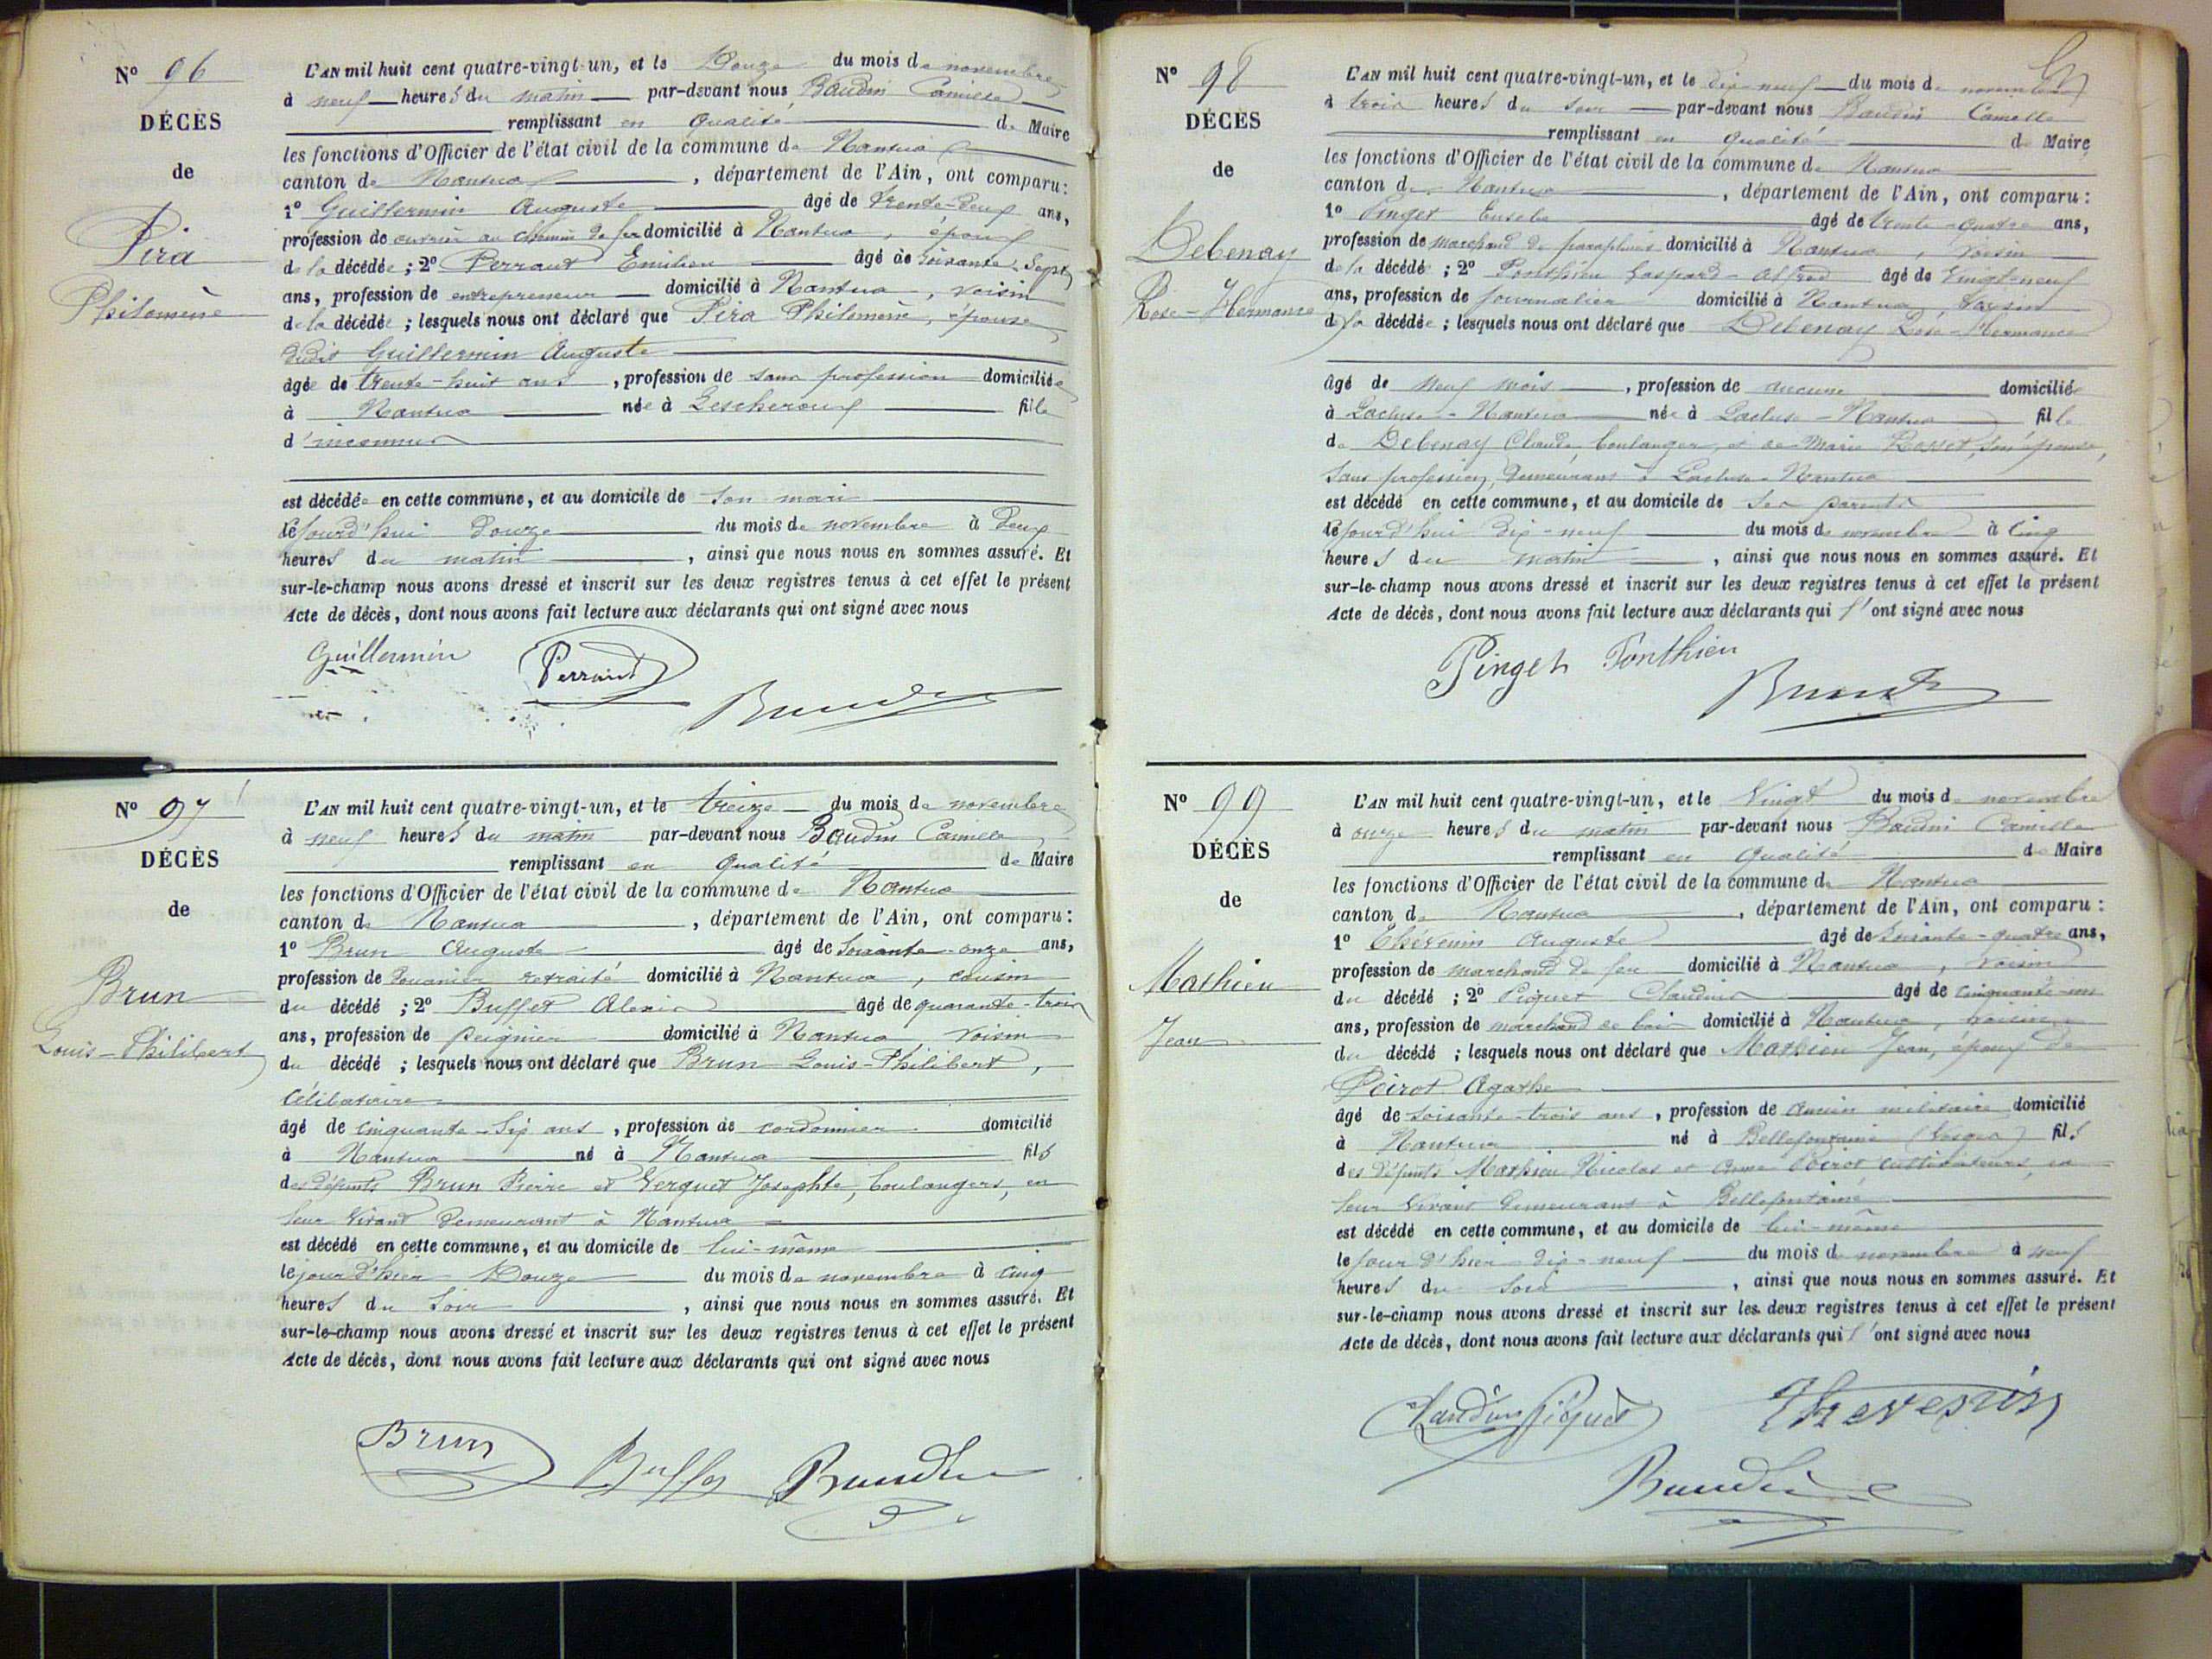 N° 96
DÉCÈS
de
Pira
Philomène
L'AN mil huit cent quatre-vingt-un, et le Douze du mois de novembre
à neuf heures du matin par-devant nous Baudin Camille
remplissant en qualité de Maire
les fonctions d'Officier de l'état civil de la commune de Nantua
canton de Nantua, département de l'Ain, ont comparu:
1° Guillermin Auguste âgé de trente-deux ans,
profession de ouvrier au chemin de fer domicilié à Nantua, époux
de la décédée; 2° Perraud Emilien âgé de soixante-sept
ans, profession de entrepreneur domicilié à Nantua, voisin
de la décédée; lesquels nous ont déclaré que Pira Philomène, épouse
dudit Guillermin Auguste
âgée de trente-huit ans, profession de sans profession domiciliée
à Nantua née à Lescheroux fille
d'inconnus
est décédée en cette commune, et au domicile de son mari
le jourd'hui douze du mois de novembre à deux
heures du matin, ainsi que nous nous en sommes assuré. Et
sur-le-champ nous avons dressé et inscrit sur les deux registres tenus à cet effet le présent
Acte de décès, dont nous avons fait lecture aux déclarants qui ont signé avec nous
Guillermin Perraud Baudin
N° 97
DÉCÈS
de
Brun
Louis-Philibert
L'AN mil huit cent quatre-vingt-un, et le treize du mois de novembre
à neuf heures du matin par-devant nous Baudin Camille
remplissant en qualité de Maire
les fonctions d'Officier de l'état civil de la commune de Nantua
canton de Nantua, département de l'Ain, ont comparu:
1° Brun Auguste âgé de soixante-onze ans,
profession de Douanier retraité domicilié à Nantua, cousin
du décédé; 2° Buffet Alexis âgé de quarante-trois
ans, profession de peignier domicilié à Nantua, voisin
du décédé; lesquels nous ont déclaré que Brun Louis-Philibert,
célibataire
âgé de cinquante-six ans, profession de cordonnier domicilié
à Nantua né à Nantua fils
des défunts Brun Pierre et Verguet Josephte, boulangers, en
leur vivant demeurant à Nantua
est décédé en cette commune, et au domicile de lui-même
le jour d'hier Douze du mois de novembre à cinq
heures du soir, ainsi que nous nous en sommes assuré. Et
sur-le-champ nous avons dressé et inscrit sur les deux registres tenus à cet effet le présent
Acte de décès, dont nous avons fait lecture aux déclarants qui ont signé avec nous
Brun Buffet Baudin
N° 98
DÉCÈS
de
Debenay
Rose-Hermance
L'AN mil huit cent quatre-vingt-un, et le dix-neuf du mois de novembre
à trois heures du soir par-devant nous Baudin Camille
remplissant en qualité de Maire
les fonctions d'Officier de l'état civil de la commune de Nantua
canton de Nantua, département de l'Ain, ont comparu:
1° Pinget Eusèbe âgé de trente-quatre ans,
profession de marchand de parapluies domicilié à Nantua, voisin
de la décédé; 2° Ponthieu Gaspard-Alfred âgé de vingt-neuf
ans, profession de journalier domicilié à Nantua voisin
de la décédée; lesquels nous ont déclaré que Debenay Rose-Hermance
âgé de neuf mois, profession de aucune domiciliée
à Lacluse-Nantua née à Lacluse-Nantua fille
de Debenay Claude, boulanger, et de Marie Rosset, son épouse,
sans profession, demeurant à Lacluse-Nantua
est décédé en cette commune, et au domicile de ses parents
le jourd'hui dix-neuf du mois de novembre à cinq
heures du matin, ainsi que nous nous en sommes assuré. Et
sur-le-champ nous avons dressé et inscrit sur les deux registres tenus à cet effet le présent
Acte de décès, dont nous avons fait lecture aux déclarants qui l'ont signé avec nous
Pinget Ponthieu Baudin
N° 99
DÉCÈS
de
Mathieu
Jean
L'AN mil huit cent quatre-vingt-un, et le Vingt du mois de novembre
à onze heures du matin par-devant nous Baudin Camille
remplissant en qualité de Maire
les fonctions d'Officier de l'état civil de la commune de Nantua
canton de Nantua, département de l'Ain, ont comparu:
1° Thévenin Auguste âgé de soixante-quatre ans,
profession de marchand de fer domicilié à Nantua, voisin
du décédé; 2° Piquet Claudius âgé de cinquante-un
ans, profession de marchand de bois domicilié à Nantua, voisin
du décédé; lesquels nous ont déclaré que Mathieu Jean, époux de
Poirot Agathe
âgé de soixante-trois ans, profession de ancien militaire domicilié
à Nantua né à Bellefontaine (Vosges) fils
des défunts Mathieu Nicolas et Anne Poirot cultivateurs, en
leur vivant demeurant à Bellefontaine
est décédé en cette commune, et au domicile de lui-même
le jour d'hier dix-neuf du mois de novembre à neuf
heures du soir, ainsi que nous nous en sommes assuré. Et
sur-le-champ nous avons dressé et inscrit sur les deux registres tenus à cet effet le présent
Acte de décès, dont nous avons fait lecture aux déclarants qui l'ont signé avec nous
Claudius Piquet Thevenin
Baudin